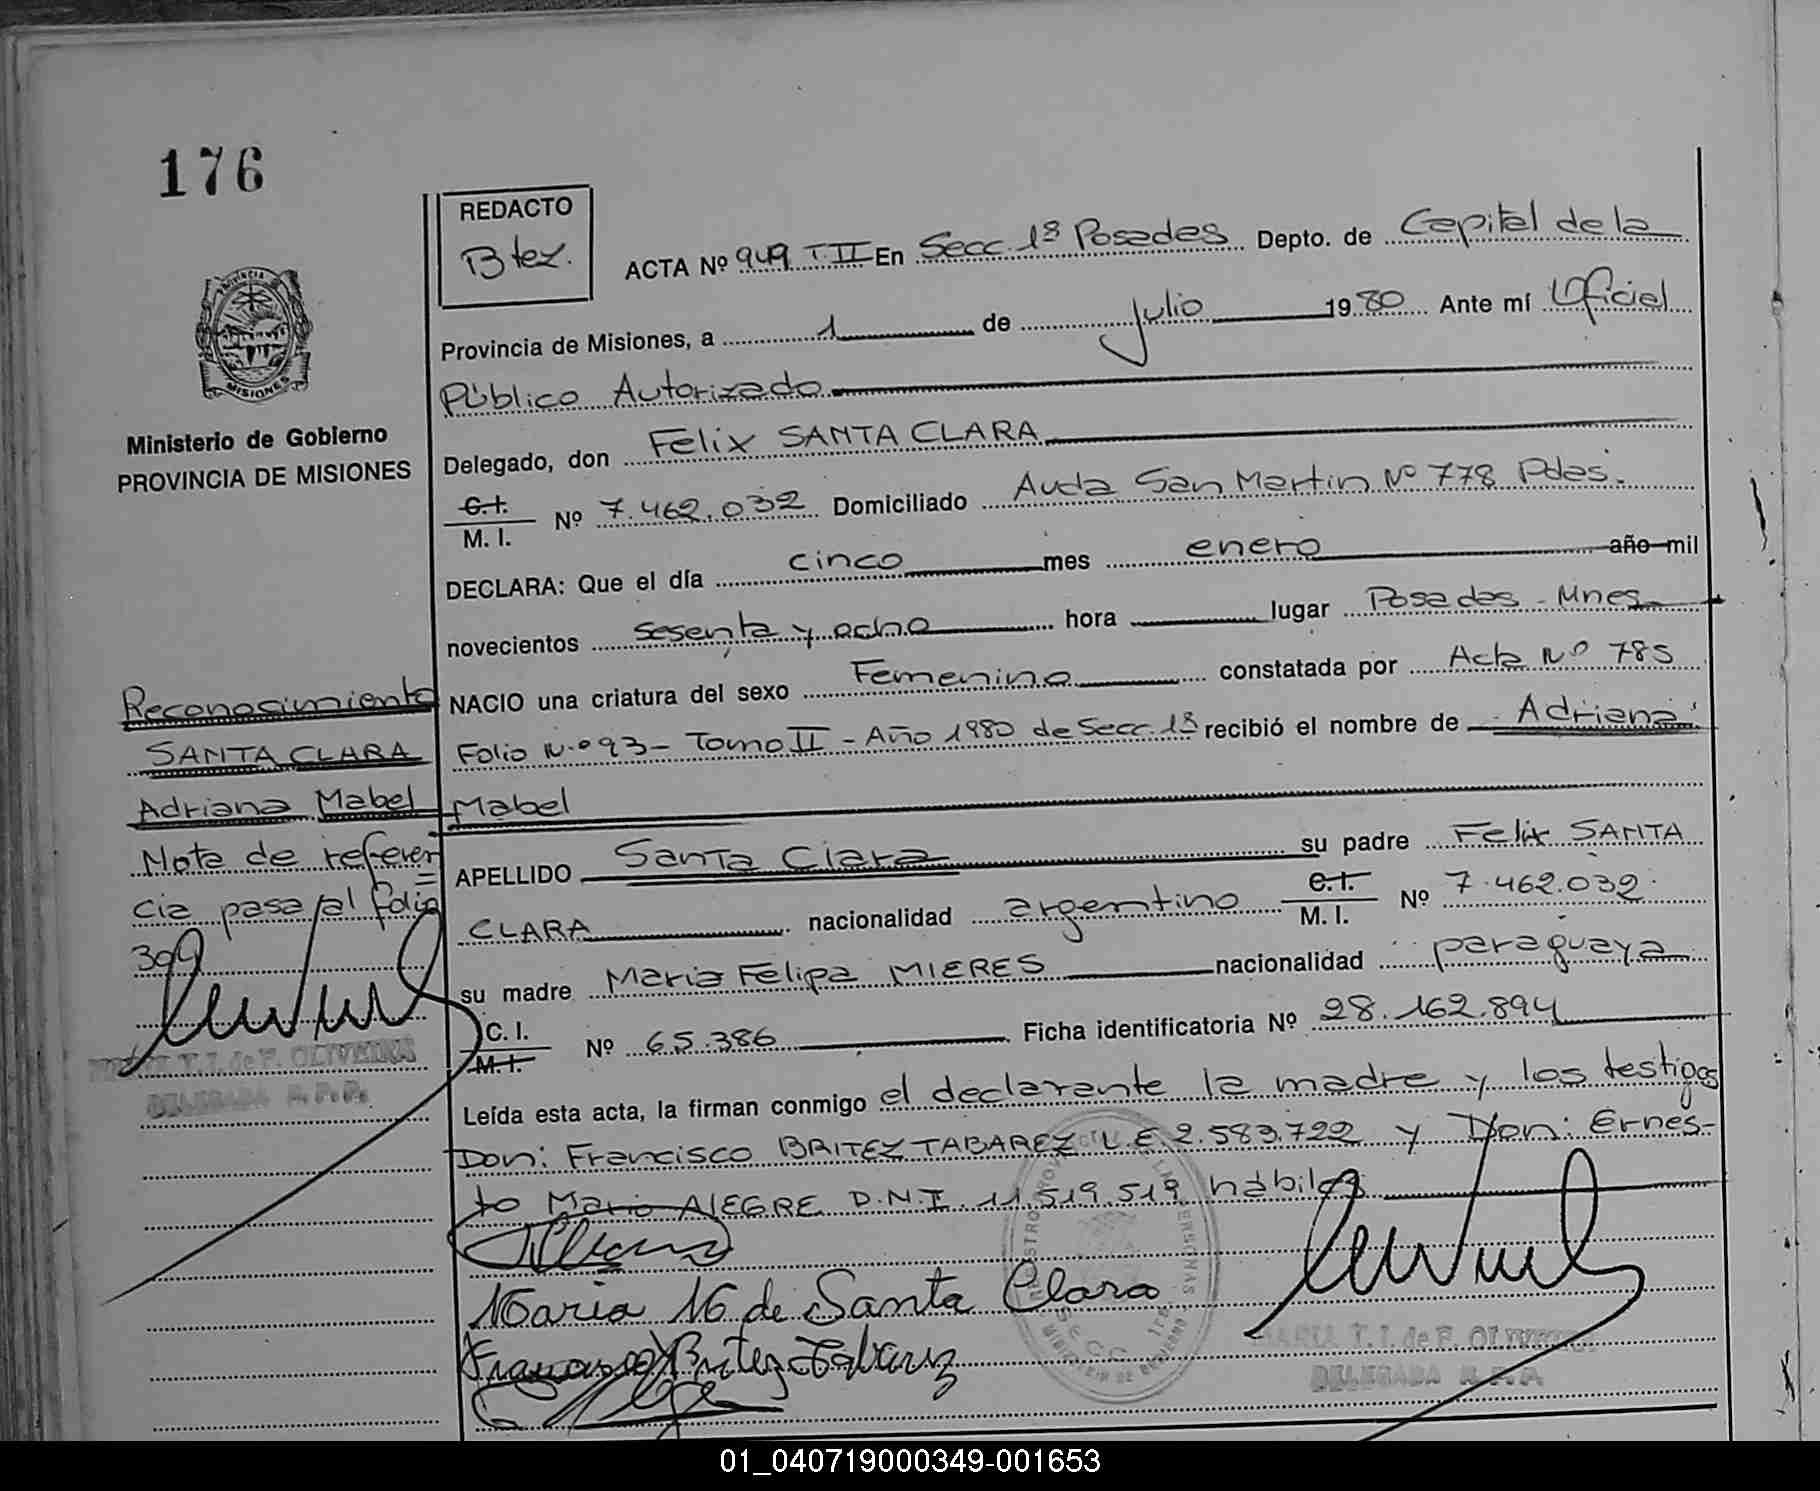 176
REDACTO
Btez.
ACTA Nº 949 T.II En Secc. 1ª Posadas Depto. de Capital de la
Provincia de Misiones, a 1 de Julio 1980 Ante mí Oficial
Público Autorizado
Ministerio de Gobierno
PROVINCIA DE MISIONES
Delegado, don Felix SANTA CLARA
C.I.
M. I. Nº 7.462.032 Domiciliado Avda San Martin Nº 778 Pdas.
DECLARA: Que el día cinco mes enero año mil
novecientos sesenta y ocho hora lugar Posadas - Mnes
NACIO una criatura del sexo Femenino constatada por Acta Nº 785
Folio N.º 93 - Tomo II - Año 1980 de Secc. 1ª recibió el nombre de Adriana
Mabel
APELLIDO Santa Clara su padre Felix SANTA
CLARA nacionalidad argentino C.I.
M. I. Nº 7.462.032
su madre Maria Felipa MIERES nacionalidad paraguaya
C. I.
M. I. Nº 65.386 Ficha identificatoria Nº 28.162.894
Leída esta acta, la firman conmigo el declarante la madre y los testigos
Don: Francisco BRITEZ TABAREZ L.E. 2.583.722 y Don: Ernes-
to Mario ALEGRE D.N.I. 11.519.519 hábiles
Reconosimiento
SANTA CLARA
Adriana Mabel
Nota de referen=
cia pasa al folio
399
T. I. de F. OLIVEIRA
DELEGADA R. P. P.
Maria M de Santa Clara
Francisco Britez Tabarez
MARIA T. I. de F. OLIVEIRA
DELEGADA R. P. P.
01_040719000349-001653